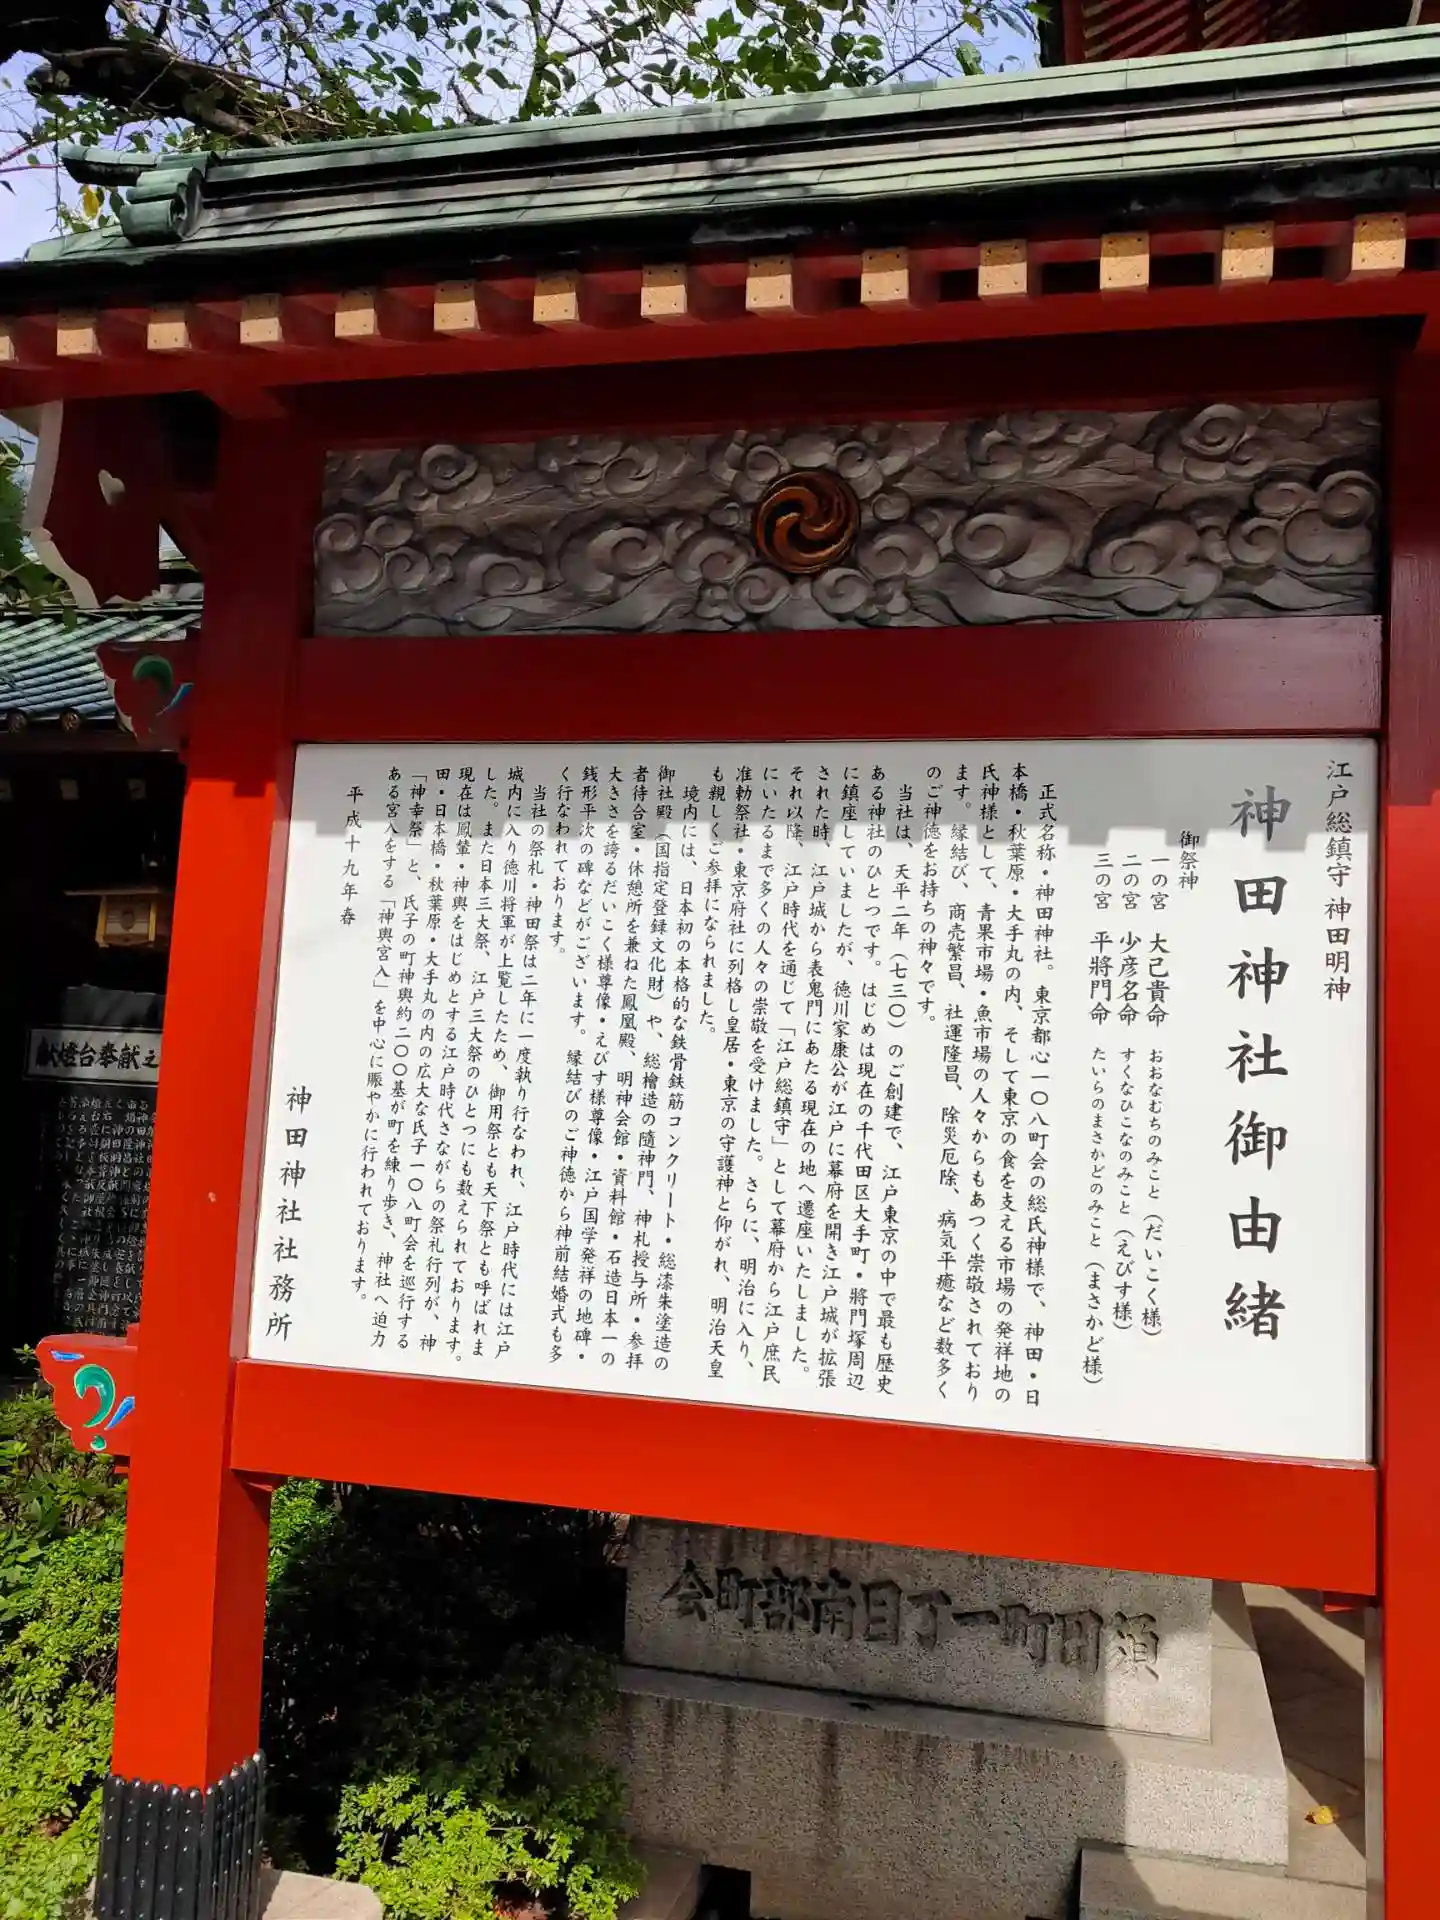 江戸総鎮守 神田明神
神田神社御由緒
御祭神
一の宮 大己貴命 おおなむちのみこと（だいこく様）
二の宮 少彦名命 すくなひこなのみこと（えびす様）
三の宮 平將門命 たいらのまさかどのみこと（まさかど様）
正式名称・神田神社。東京都心一〇八町会の総氏神様で、神田・日
本橋・秋葉原・大手丸の内、そして東京の食を支える市場の発祥地の
氏神様として、青果市場・魚市場の人々からもあつく崇敬されており
ます。縁結び、商売繁昌、社運隆昌、除災厄除、病気平癒など数多く
のご神徳をお持ちの神々です。
当社は、天平二年（七三〇）のご創建で、江戸東京の中で最も歴史
ある神社のひとつです。はじめは現在の千代田区大手町・將門塚周辺
に鎮座していましたが、徳川家康公が江戸に幕府を開き江戸城が拡張
された時、江戸城から表鬼門にあたる現在の地へ遷座いたしました。
それ以降、江戸時代を通じて「江戸総鎮守」として幕府から江戸庶民
にいたるまで多くの人々の崇敬を受けました。さらに、明治に入り、
准勅祭社・東京府社に列格し皇居・東京の守護神と仰がれ、明治天皇
も親しくご参拝になられました。
境内には、日本初の本格的な鉄骨鉄筋コンクリート・総漆朱塗造の
御社殿（国指定登録文化財）や、総檜造の隨神門、神札授与所・参拝
者待合室・休憩所を兼ねた鳳凰殿、明神会館・資料館・石造日本一の
大きさを誇るだいこく様尊像・えびす様尊像・江戸国学発祥の地碑・
銭形平次の碑などがございます。縁結びのご神徳から神前結婚式も多
く行なわれております。
当社の祭礼・神田祭は二年に一度執り行なわれ、江戸時代には江戸
城内に入り徳川将軍が上覧したため、御用祭とも天下祭とも呼ばれま
した。また日本三大祭、江戸三大祭のひとつにも数えられております。
現在は鳳輦・神輿をはじめとする江戸時代さながらの祭礼行列が、神
田・日本橋・秋葉原・大手丸の内の広大な氏子一〇八町会を巡行する
「神幸祭」と、氏子の町神輿約二〇〇基が町を練り歩き、神社へ迫力
ある宮入をする「神輿宮入」を中心に賑やかに行われております。
平成十九年春
神田神社社務所
献燈台奉献之
須田町一丁目南部町会